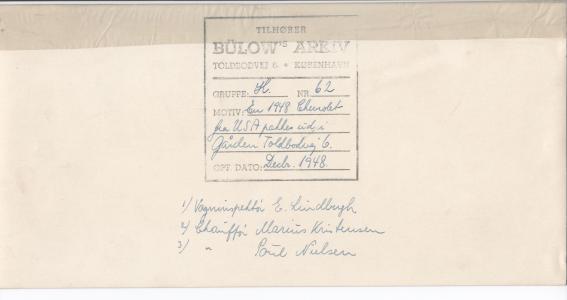 TILHØRER
BÜLOW'S ARKIV
TOLDBODVEJ 6 * KØBENHAVN
GRUPPE: H. NR. 62
MOTIV: En 1948 Chevrolet
fra USA pakkes ud i
Gården Toldbodvej 6.
OPT DATO: Decbr. 1948.
1/ Vogninspektør E. Lindbergh
2/ Chauffør Marius Kristensen
3/ " Poul Nielsen